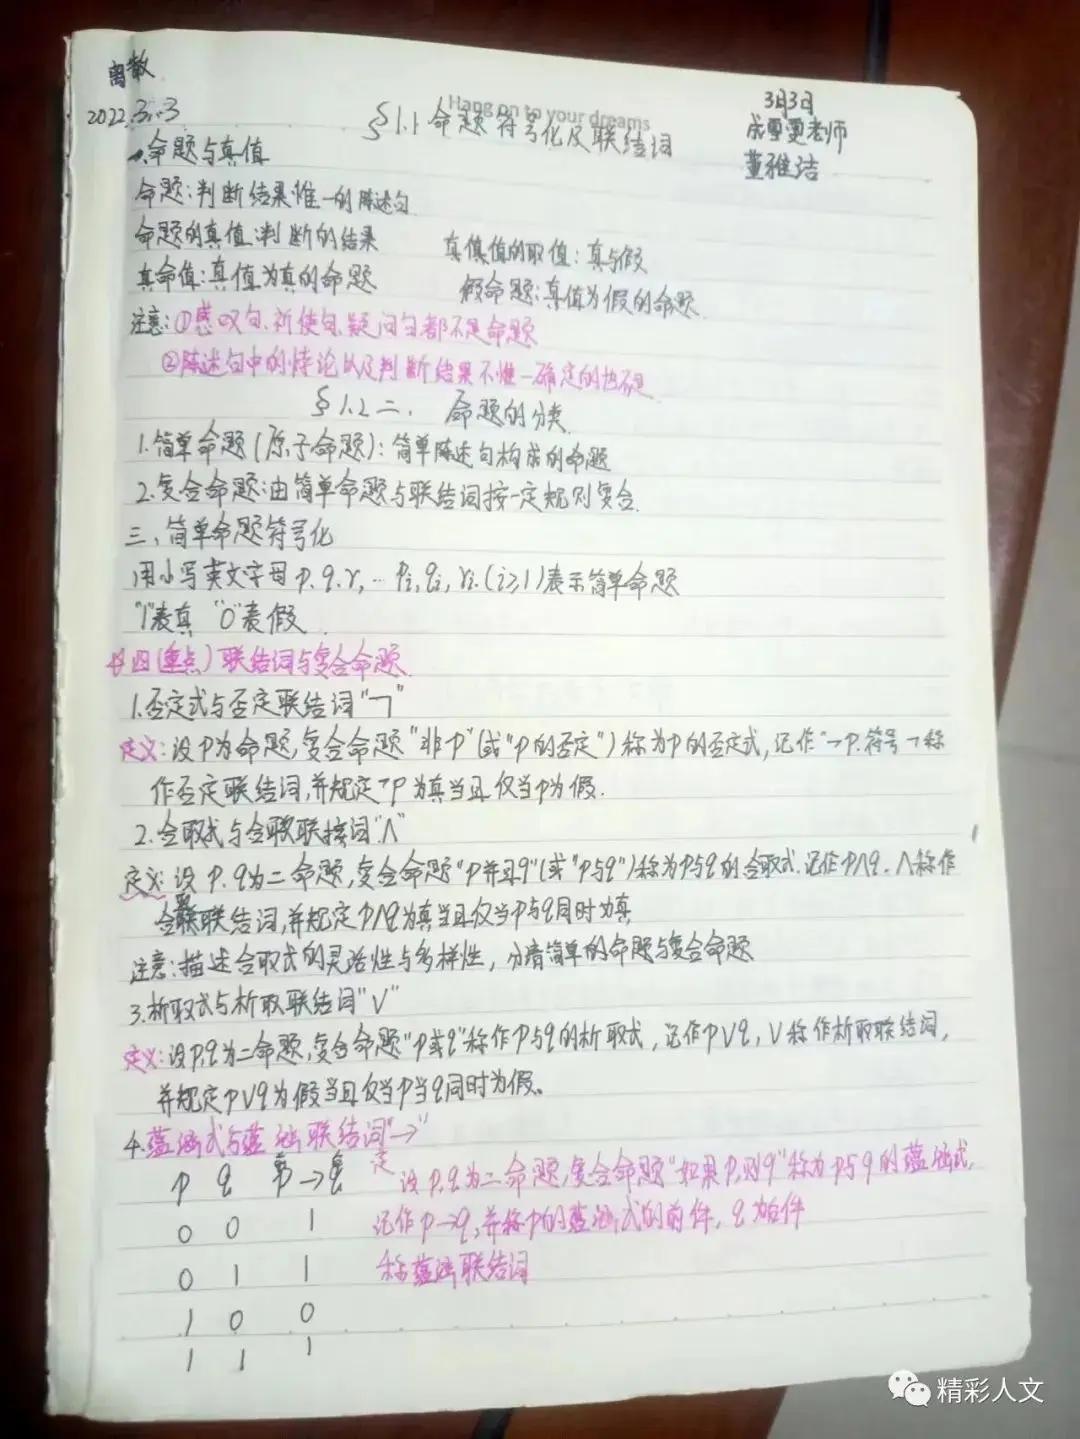 离散
2022.3.3
Hang on to your dreams
§1.1 命题符号化及联结词
3月3日
老师
董雅洁
一.命题与真值
命题:判断结果惟一的陈述句
命题的真值:判断的结果 真值的取值:真与假
真命值:真值为真的命题 假命题:真值为假的命题
注意:①感叹句、祈使句、疑问句都不是命题
②陈述句中的悖论以及判断结果不惟一确定的也不是
§1.2 二、命题的分类
1.简单命题(原子命题):简单陈述句构成的命题
2.复合命题:由简单命题与联结词按一定规则复合
三、简单命题符号化
用小写英文字母p.q.r,…pi,qi,ri.(i≥1)表示简单命题
"1"表真 "0"表假
四(重点)联结词与复合命题
1.否定式与否定联结词"¬"
定义:设P为命题,复合命题"非P"(或"P的否定")称为P的否定式,记作"¬P.符号¬称
作否定联结词,并规定¬P为真当且仅当P为假.
2.合取式与合取联接词"∧"
定义:设P.q为二命题,复合命题"P并且q"(或"P与q")称为P与q的合取式.记作P∧q.∧称作
合取联结词,并规定P∧q为真当且仅当P与q同时为真
注意:描述合取式的灵活性与多样性,分清简单的命题与复合命题
3.析取式与析取联结词"∨"
定义:设P,q为二命题,复合命题"P或q"称作P与q的析取式,记作P∨q,∨称作析取联结词,
并规定P∨q为假当且仅当P当q同时为假。
4.蕴涵式与蕴涵联结词"→"
p q p→q 定 设P,q为二命题,复合命题"如果P,则q"称为P与q的蕴涵式,
0 0 1 记作P→q,并称P的蕴涵式的前件,q为后件
0 1 1 称蕴涵联结词
1 0 0
1 1 1
精彩人文